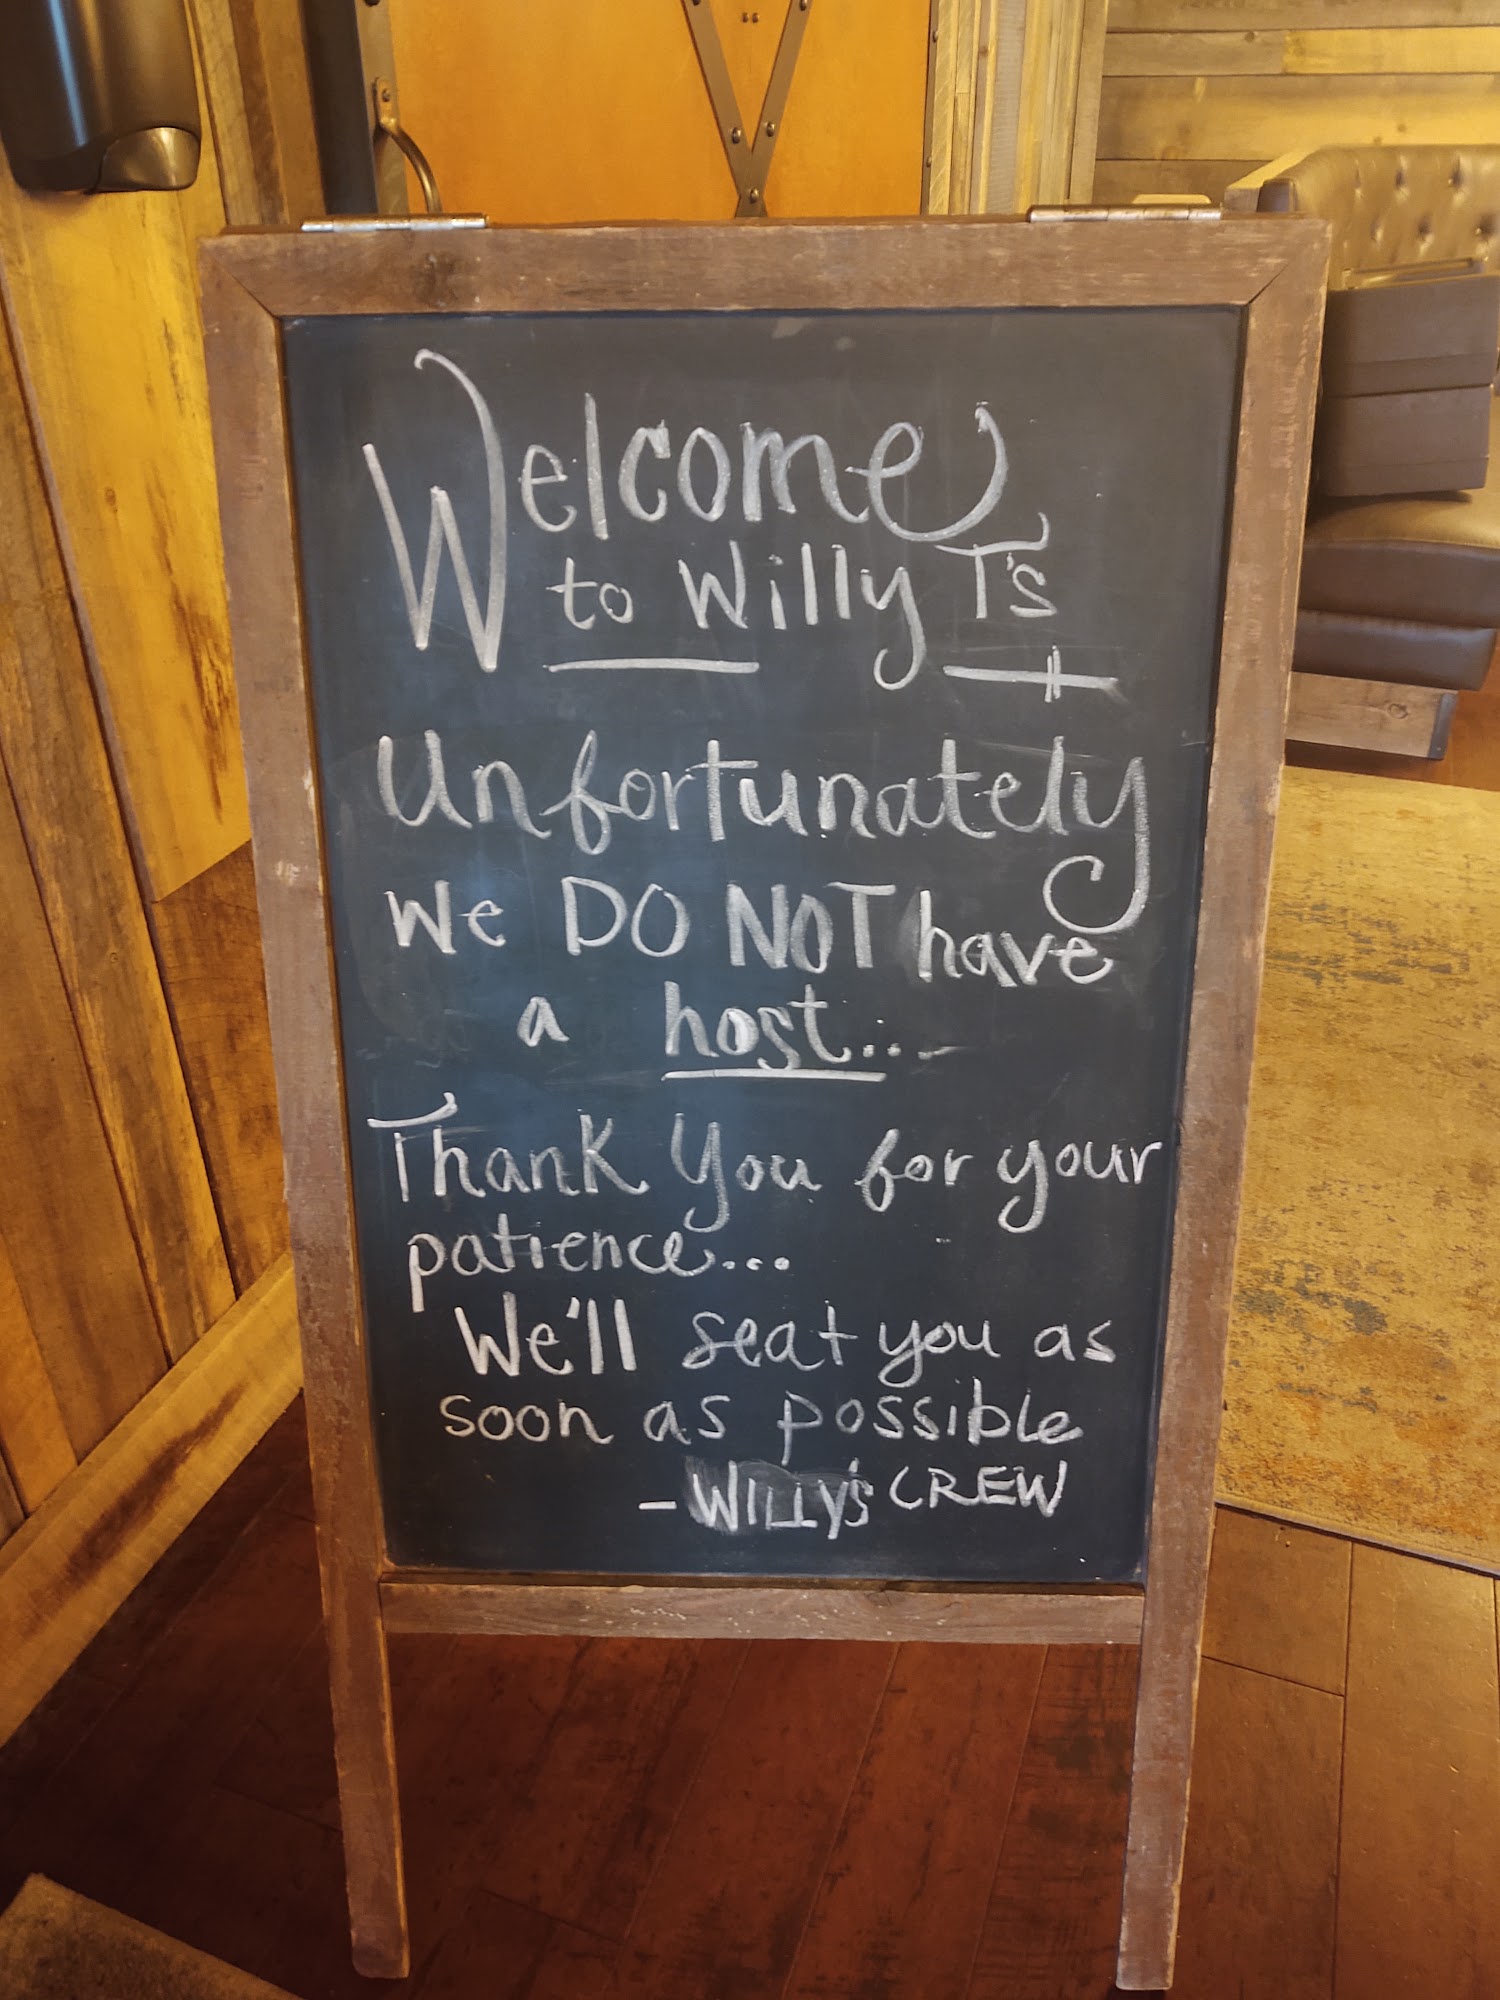 Welcome
to Willy T's
Unfortunately
We DO NOT have
a host...
Thank You for your
patience...
We'll seat you as
soon as possible
- WILLY'S CREW